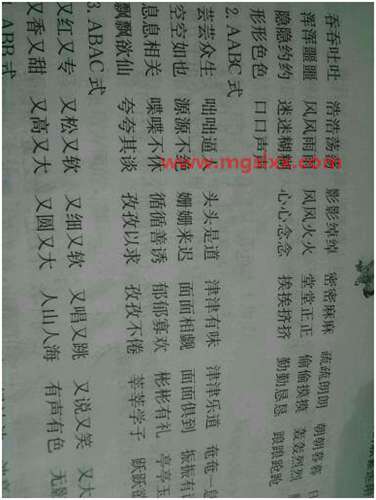 吞吞吐吐 浩浩荡荡 影影绰绰 密密麻麻 疏疏朗朗 朝朝暮暮
浑浑噩噩 风风雨雨 风风火火 堂堂正正 偷偷摸摸 轰轰烈烈
隐隐约约 迷迷糊糊 心心念念 挨挨挤挤 勤勤恳恳 踉踉跄跄
形形色色 口口声声
2. AABC 式
芸芸众生 咄咄逼人 头头是道 津津有味 津津乐道 奄奄一
空空如也 源源不 姗姗来迟 面面相觑 面面俱到 振振有
息息相关 喋喋不休 循循善诱 郁郁寡欢 彬彬有礼 亭亭玉
飘飘欲仙 夸夸其谈 孜孜以求 孜孜不倦 莘莘学子 跃跃
3. ABAC 式
又红又专 又松又软 又细又软 又唱又跳 又说又笑 又大
又香又甜 又高又大 又圆又大 人山人海 有声有色 无
ABB 式